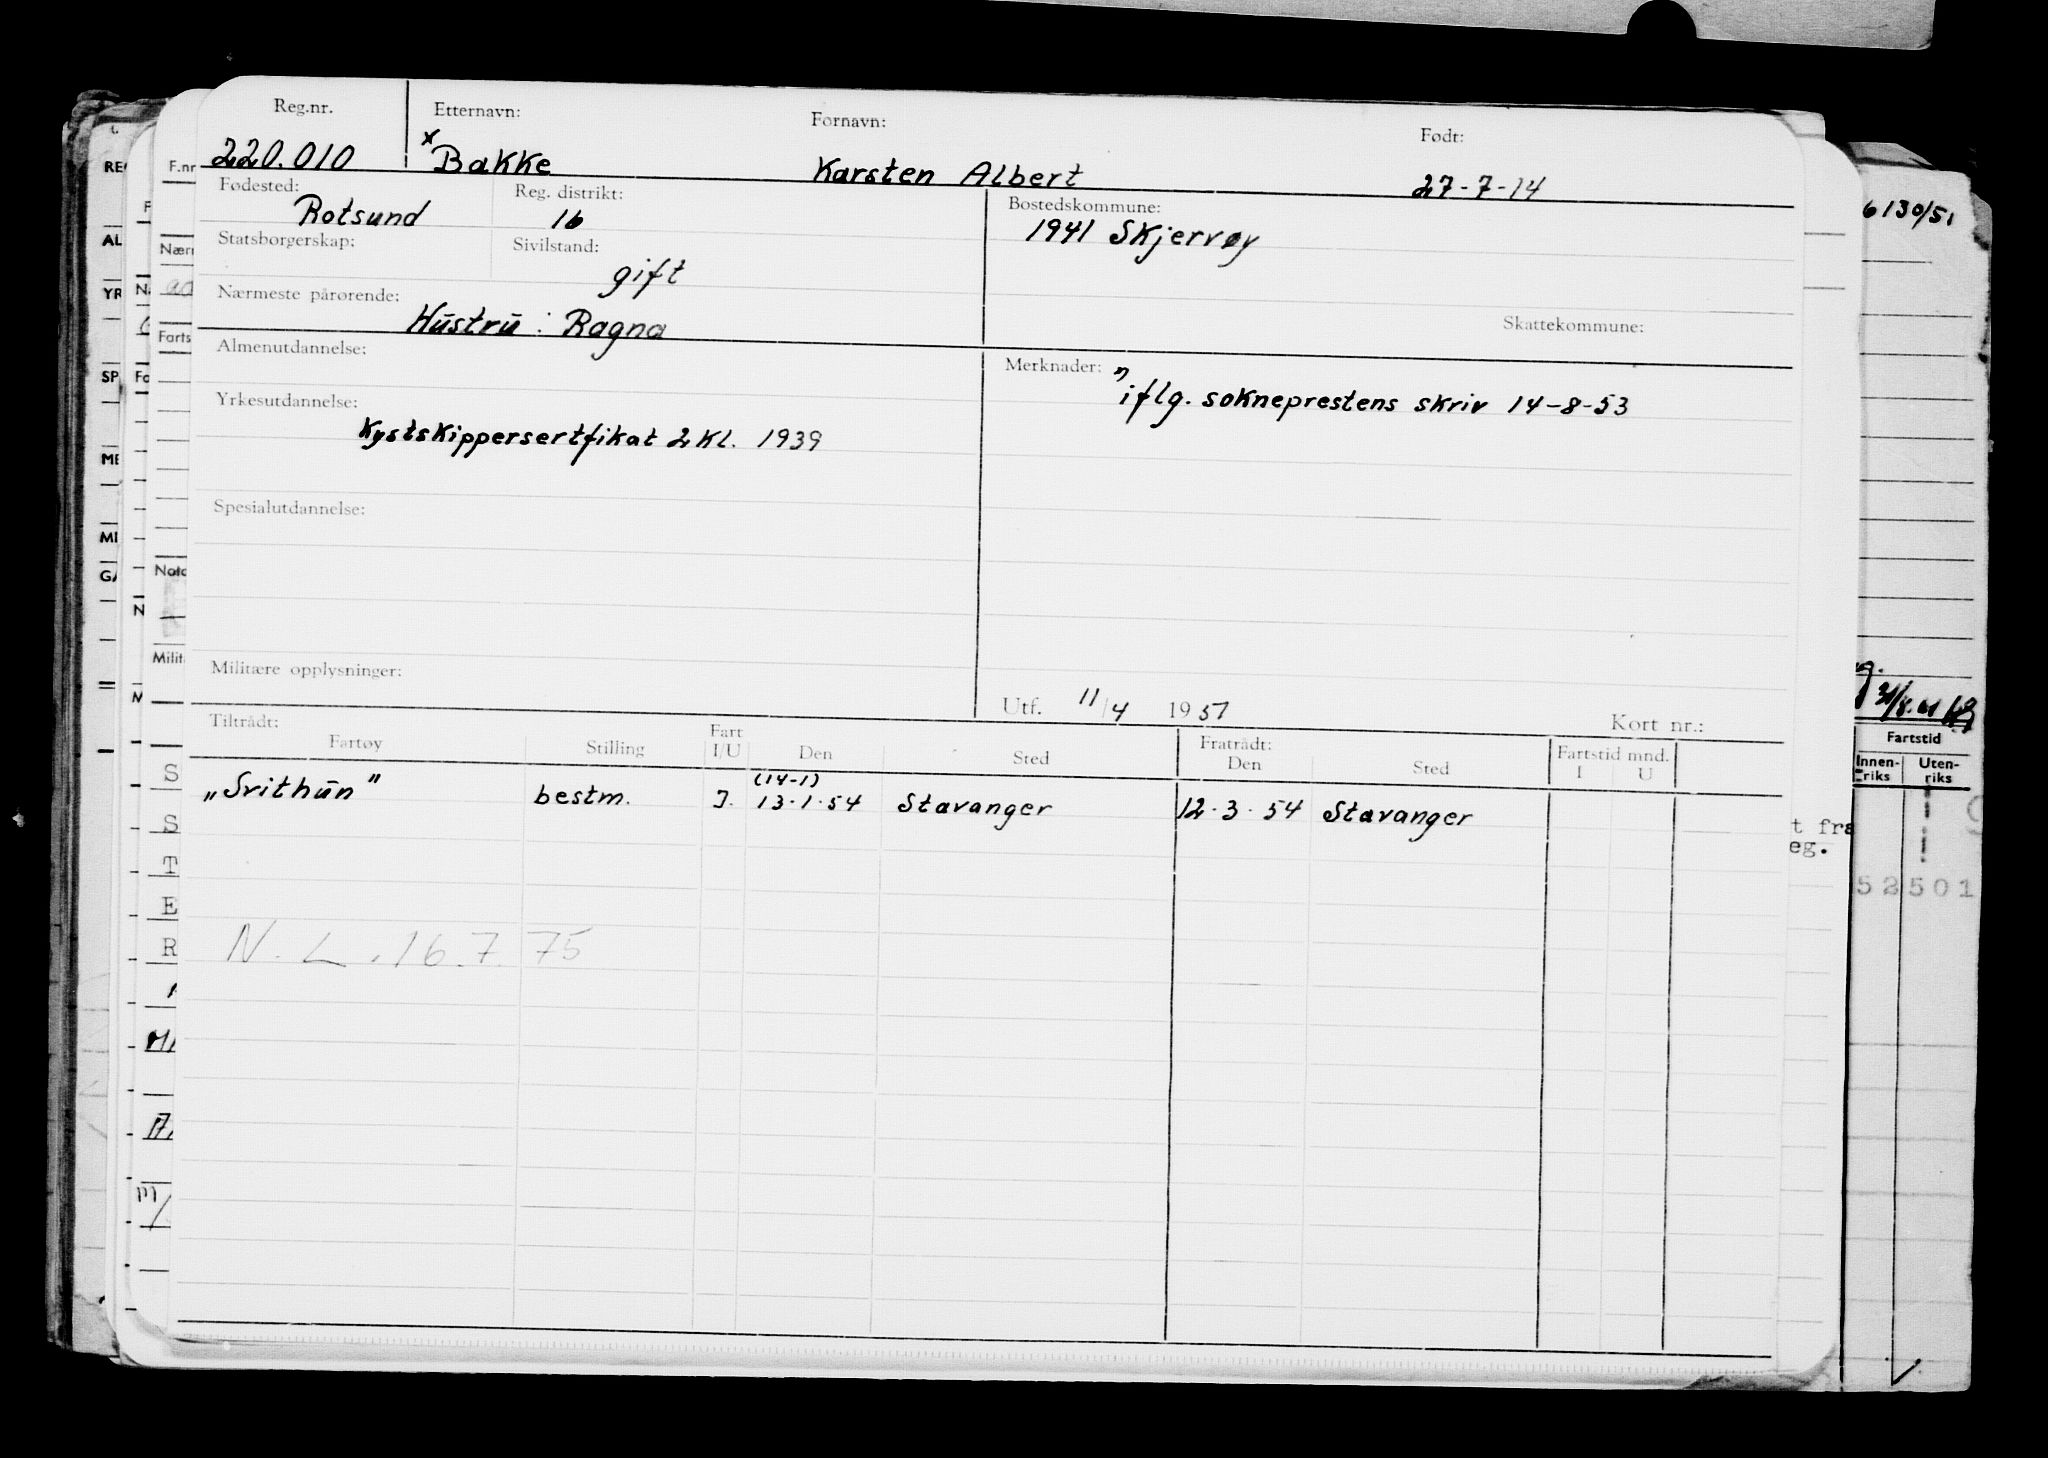 Reg.nr. Etternavn: Fornavn: Født:
220.010 x Bakke Karsten Albert 27-7-14
Fødested: Reg. distrikt: Bostedskommune:
Rotsund 16 1941 Skjervøy
Statsborgerskap: Sivilstand:
gift
Nærmeste pårørende: Skattekommune:
Hustru: Ragna
Almenutdannelse: Merknader:
iflg. sokneprestens skriv 14-8-53
Yrkesutdannelse:
Kystskippersertfikat 2 kl. 1939
Spesialutdannelse:
Militære opplysninger:
Utf. 11/4 1951 Kort nr.:
Tiltrådt: Fratrådt: Fartstid mnd.
Fartøy Stilling Fart I/U Den Sted Den Sted I U
(14-1)
„Svithun" bestm. I. 13.1.54 Stavanger 12.3.54 Stavanger
N. L. 16.7.75
6130/51
Fartstid
Innen-riks Uten-riks
t fra
eg.
52501
F.nr
Nærm
Farts
Milit
S
S
T
E
R